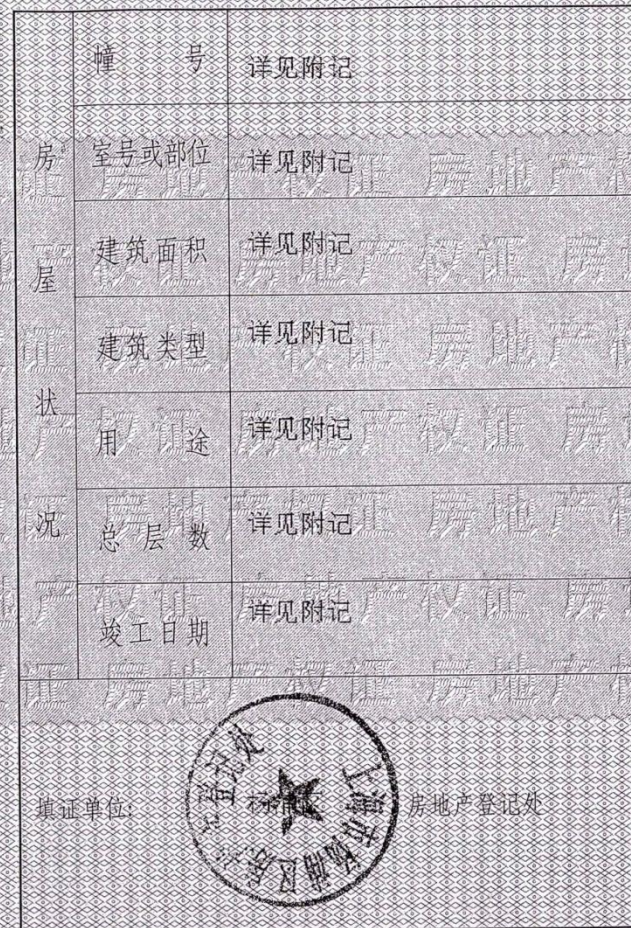 房屋状况
幢号 详见附记
室号或部位 详见附记
建筑面积 详见附记
建筑类型 详见附记
用途 详见附记
总层数 详见附记
竣工日期 详见附记
填证单位: 杨浦区 房地产登记处
上海市杨浦区房地产登记处
房地产权证